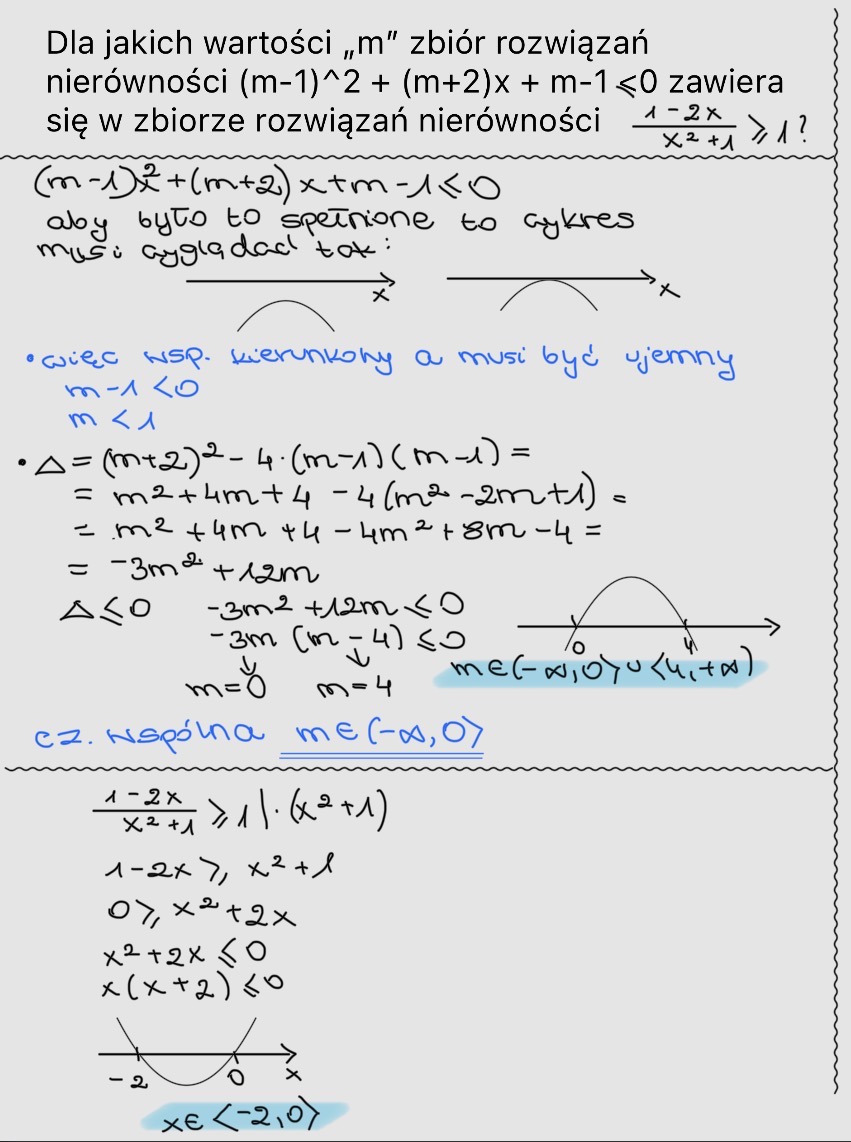 Dla jakich wartości „m” zbiór rozwiązań
nierówności (m-1)^2 + (m+2)x + m-1 ⩽0 zawiera
się w zbiorze rozwiązań nierówności (1-2x)/(x²+1) ⩾ 1?
(m-1)x²+(m+2)x+m-1⩽0
aby było to spełnione to wykres
musi wyglądać tak:
x x
• więc wsp. kierunkowy a musi być ujemny
m-1<0
m<1
• △ = (m+2)² - 4·(m-1)(m-1) =
= m²+4m+4 -4(m²-2m+1) =
= m²+4m+4-4m²+8m-4 =
= -3m²+12m
△⩽0 -3m²+12m⩽0
-3m(m-4)⩽0
0 4
m=0 m=4 m∈(-∞,0⟩∪⟨4,+∞)
cz. wspólna m∈(-∞,0⟩
(1-2x)/(x²+1) ⩾ 1 |·(x²+1)
1-2x ⩾ x²+1
0⩾ x²+2x
x²+2x ⩽0
x(x+2)⩽0
-2 0 x
x∈⟨-2,0⟩